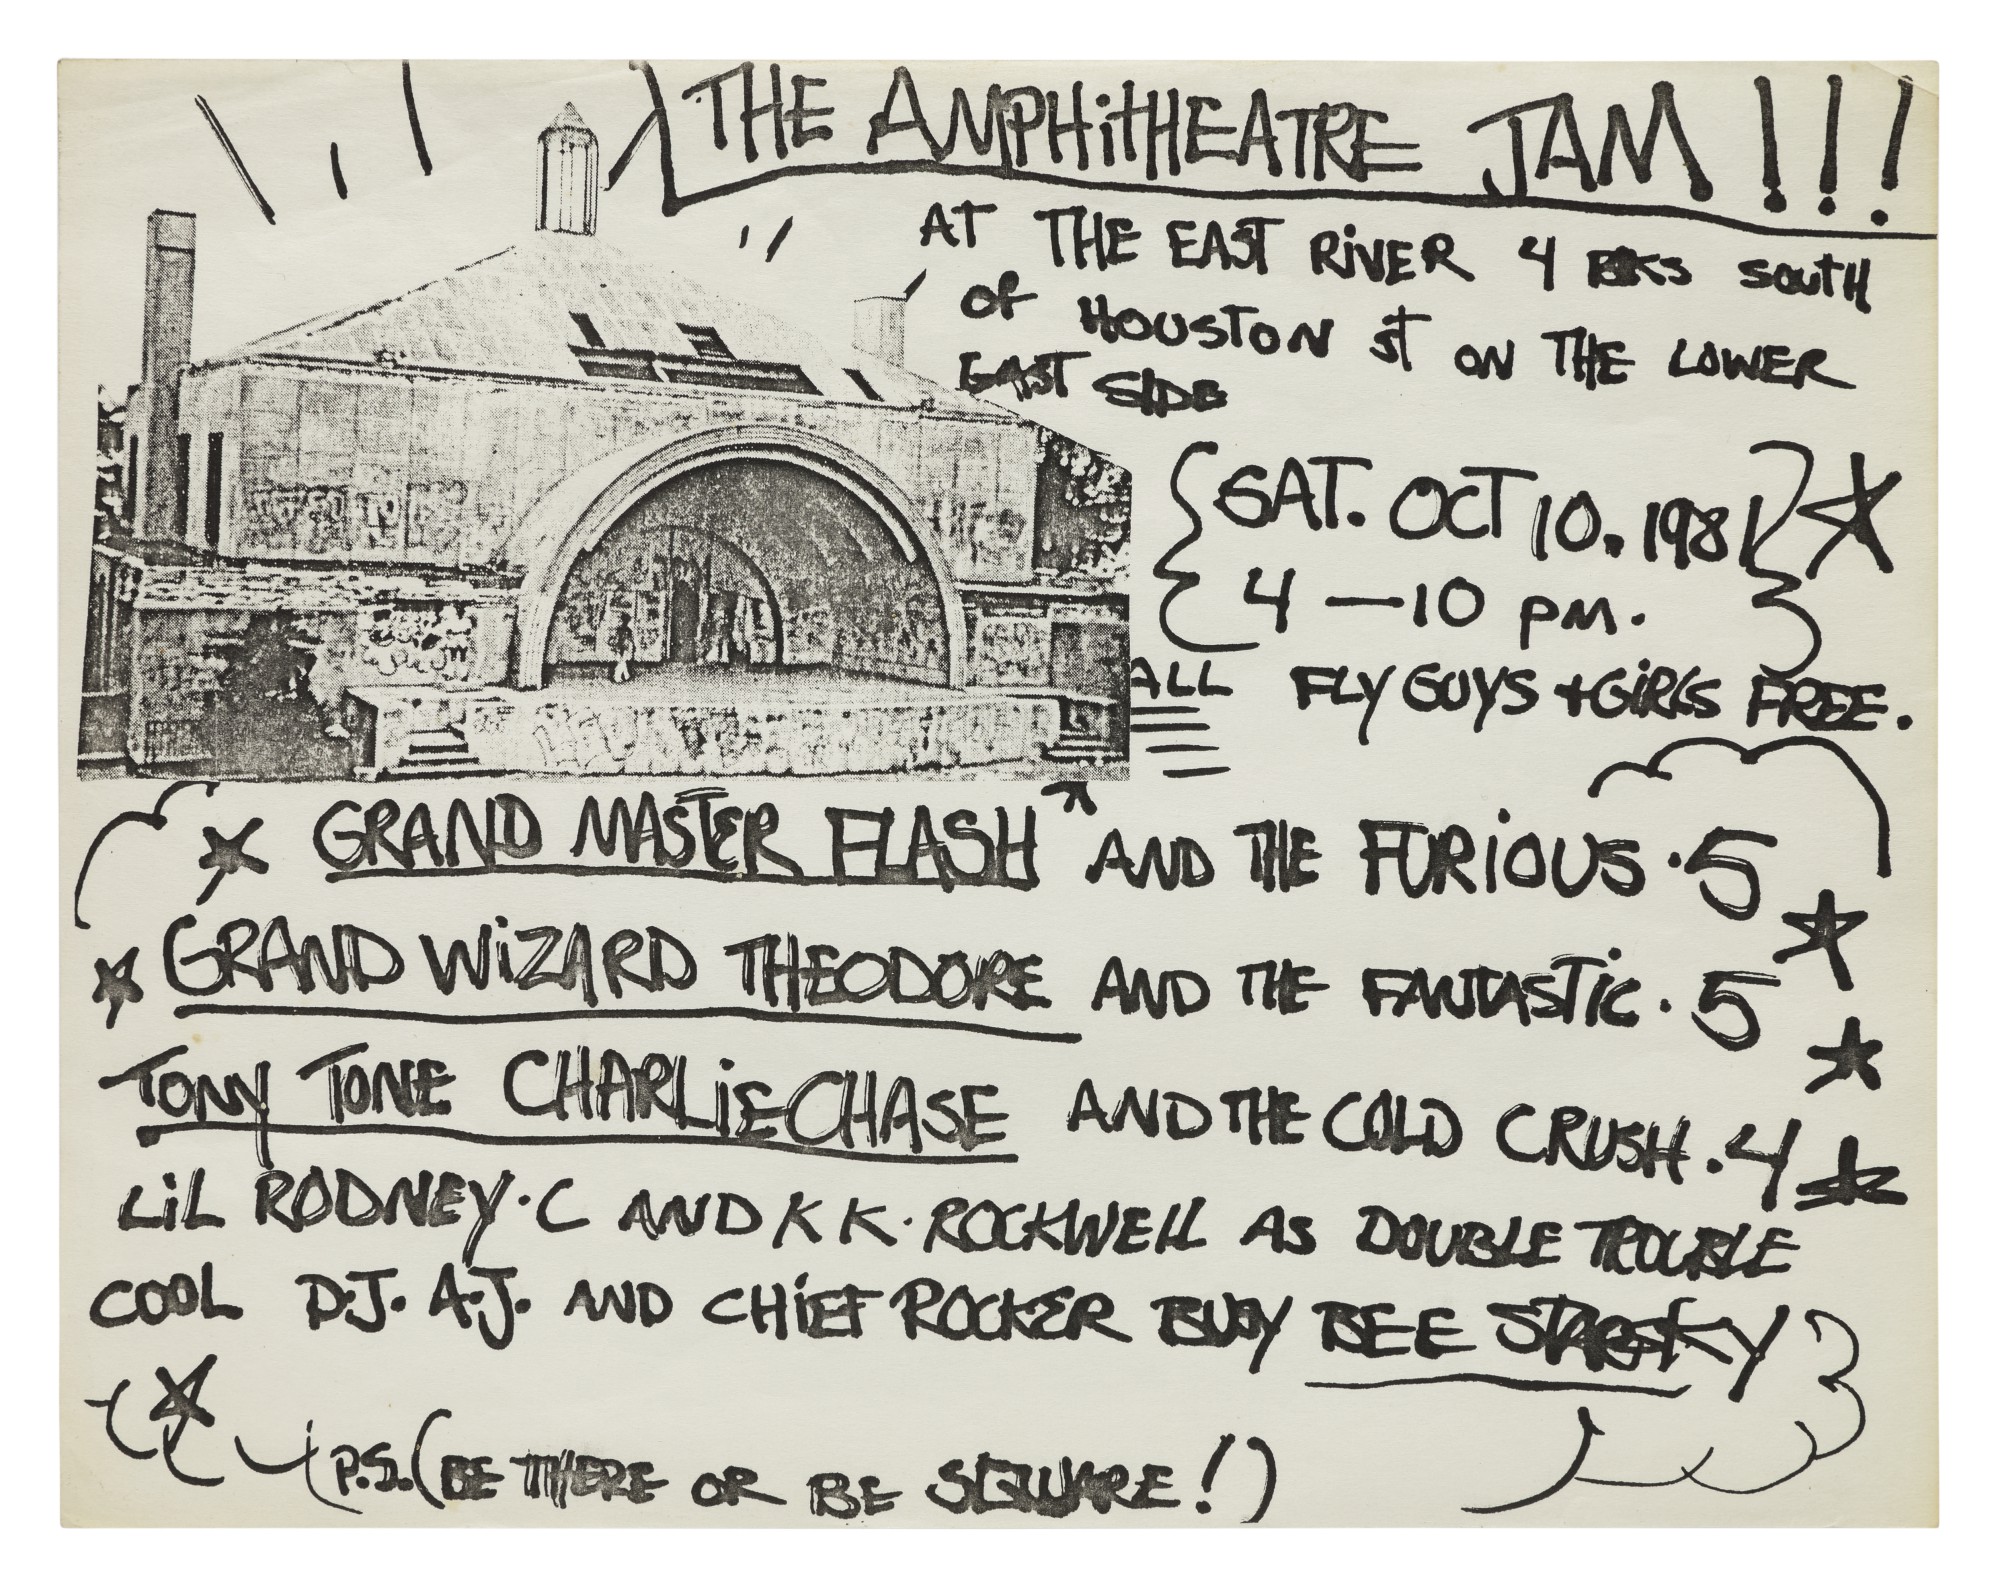 THE AMPHITHEATRE JAM!!!
AT THE EAST RIVER 4 BKS SOUTH
OF HOUSTON ST ON THE LOWER
EAST SIDE
SAT. OCT 10. 1981
4 — 10 PM.
ALL FLY GUYS + GIRLS FREE.
GRAND MASTER FLASH AND THE FURIOUS · 5
GRAND WIZARD THEODORE AND THE FANTASTIC · 5
TONY TONE CHARLIE CHASE AND THE COLD CRUSH · 4
LIL RODNEY · C AND K K · ROCKWELL AS DOUBLE TROUBLE
COOL D.J. A.J. AND CHIEF ROCKER BUSY BEE STARSKY
P.S. (BE THERE OR BE SQUARE!)